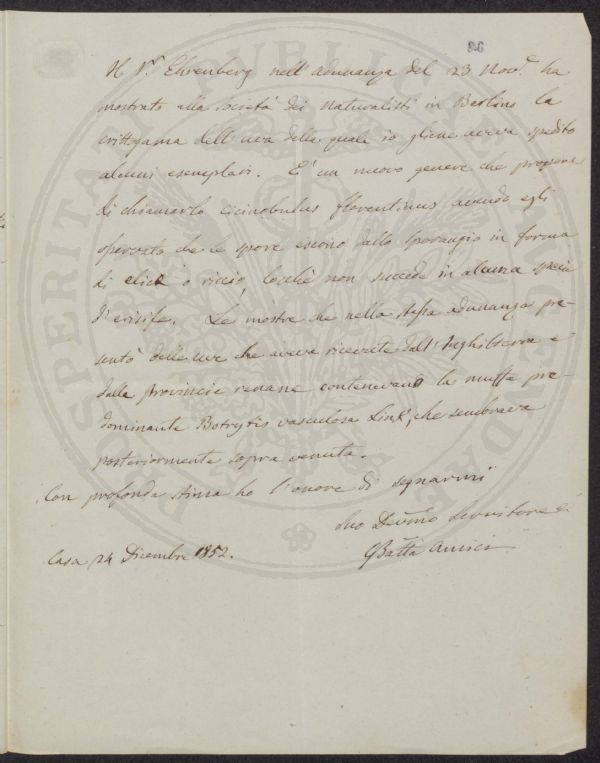 86
Il Pr. Ehrenberg nell'adunanza del 23 Nove. ha
mostrato alla società dei naturalisti in Berlino la
crittogama dell'uva della quale io gliene aveva spedito
alcuni esemplari. E' un nuovo genere che propone
di chiamarlo cicinobulus florentinus avendo egli
osservato che le spore escono dallo sporangio in forma
di elice o riccio, loschè non succede in alcuna specie
d'erisife. Le mostre che nella stessa adunanza pre-
sentò delle uve che aveva ricevute dall'Inghilterra e
dalle provincie renane contenevano la muffa pre-
dominante Botrytis vasculosa Link, che sembrava
posteriormente sopra venuta.
Con profonda stima ho l'onore di segnarmi
Suo Devmo Servitore
Casa 24 Dicembre 1852.
GBatta Amici
PROSPERITATI PUBLICAE AUGENDAE